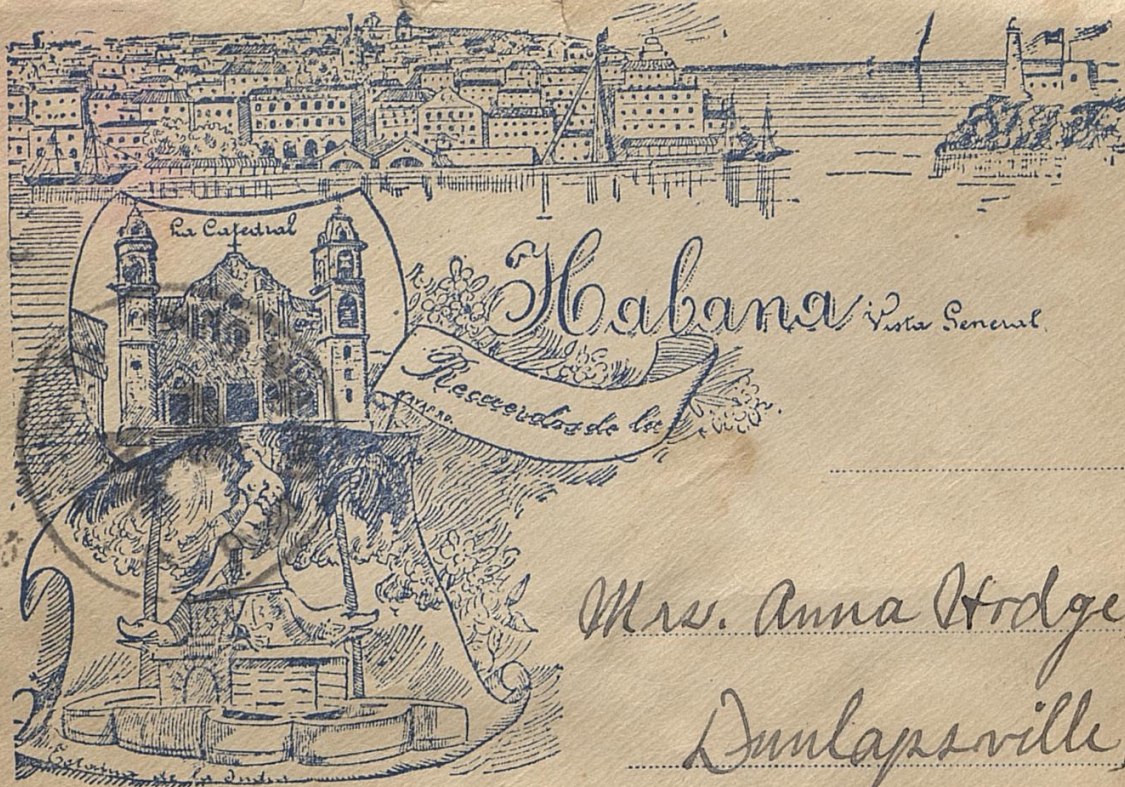 La Catedral
Habana Vista General.
Recuerdos de la
Mrs. Anna Hodge
Dunlapsville,
de la India